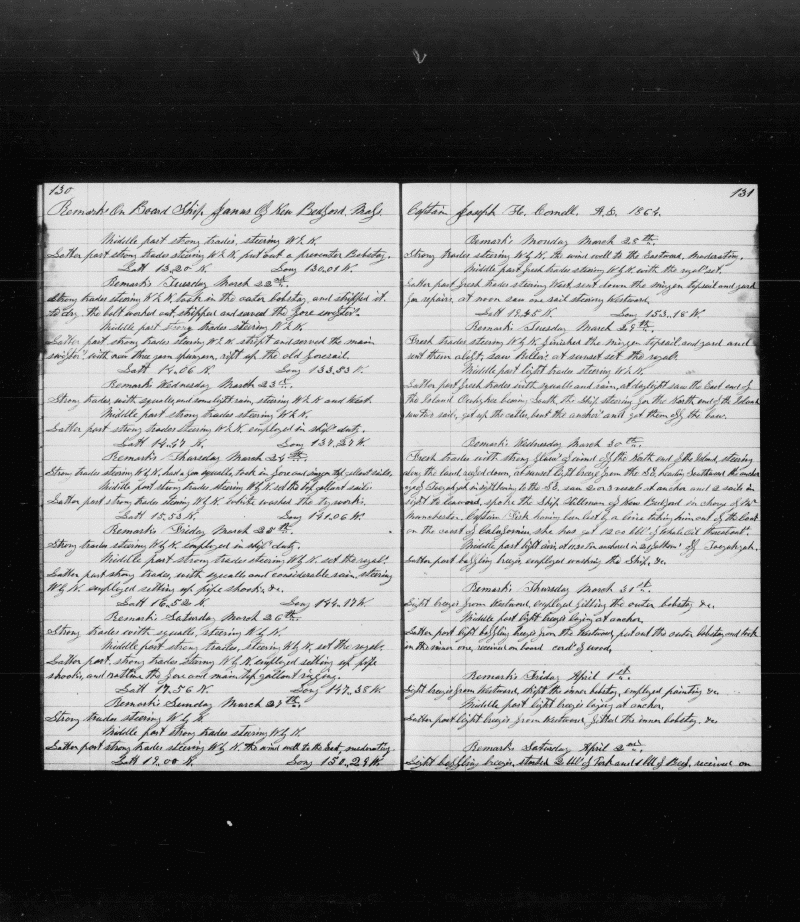 130
Remarks On Board Ship Janus Of New Bedford, Mass.
Middle part strong trades, steering W b N.
Latter part strong trades steering W b N. put out a preventer Bobstay.
Latt 13..20 N. Long 130,01 W.
Remarks Tuesday March 22nd.
Strong trades steering W b N took in the outer bobstay, and stripped it
to dry, the bolt worked out, stripped and served the fore
Middle part strong trades steering W b N.
Latter part strong trades steering W b N. stript and served the main
with new three yarn spunyarn, ript up the old foresail.
Latt 14..06 N. Long 133..53 W.
Remarks Wednesday March 23rd.
Strong trades, with squalls, and some light rain, steering W b N and West.
Middle part strong trades steering W b N.
Latter part strong trades steering W b N. employed in ship's duty.
Latt 14..47 N. Long 137..27 W.
Remarks Thursday March 24th.
Strong trades steering W b N, had a few squalls, took in fore and mizzen top gallant sails.
Middle part strong trades steering W b N set the top gallant sails.
Latter part strong trades steering W b N. white washed the try works.
Latt 15..53 N. Long 141..06 W.
Remarks Friday March 25th.
Strong trades steering W b N. employed in ship's duty.
Middle part strong trades steering W b N. set the royals.
Latter part strong trades, with squalls and considerable rain, steering
W b N. employed setting up pipe shooks, &c.
Latt 16..52 N. Long 144..17 W.
Remarks Saturday March 26th.
Strong trades with squalls, steering W b N.
Middle part strong trades, steering W b N. set the royals.
Latter part, strong trades steering W b N. employed setting up pipe
shooks, and rattling the fore and main top gallant rigging.
Latt 17..56 N. Long 147..35 W.
Remarks Sunday March 27th.
Strong trades steering W b N
Middle part strong trades steering W b N
Latter part strong trades steering W b N. the wind well to the East, moderating.
Latt 19..00 N. Long 150..29 W.
131
Captain Joseph H. Cornell. A.D. 1864.
Remarks Monday March 28th.
Strong trades steering W b N. the wind well to the Eastward, Moderating.
Middle part fresh trades steering W b N with the royals set.
Latter part fresh trades steering West, sent down the mizzen topsail and yard
for repairs, at noon saw one sail steering Westward.
Latt 19..45 N. Long 153..18 W.
Remarks Tuesday March 29th.
Fresh trades steering W b N finished the mizzen topsail and yard and
sent them aloft, saw at sunset set the royals
Middle part light trades steering W b N.
Latter part fresh trades with squalls and rain, at daylight saw the East end of
the Island bearing South, the Ship steering for the North end of the Island
saw two sails, got up the cables, bent the anchors and got them off the bow.
Remarks Wednesday March 30th.
Fresh trades with strong flaws of wind off the North end of the Island, steering
along the land, reefed down, at sunset light breeze from the SE, heading Southward the anchor-
age of in sight bearing to the SE, saw 2 or 3 vessels at anchor and 2 sails in
sight to leeward, spoke the Ship Tillman of New Bedford in charge of Mr
Captain Fisk having been lost by a line taking him out of the boat
on the coast of California she has got 1200 bbls of whale oil
Middle part light airs, at anchored in off
Latter part baffling breezes employed washing the Ship, &c.
Remarks Thursday March 31st.
Light breezes from Westward, employed fitting the outer bobstay &c.
Middle part light breezes laying at anchor.
Latter part light baffling breezes from the Westward, put out the outer bobstay, and took
in the inner one, received on board cord of wood,
Remarks Friday April 1st.
Light breezes from Westward, stript the inner bobstay, employed painting &c
Middle part light breezes laying at anchor.
Latter part light breezes from Westward fitted the inner bobstay. &c
Remarks Saturday April 2nd.
Light baffling breezes, 2 bbls of Pork and 1 bbl of Beef, received on